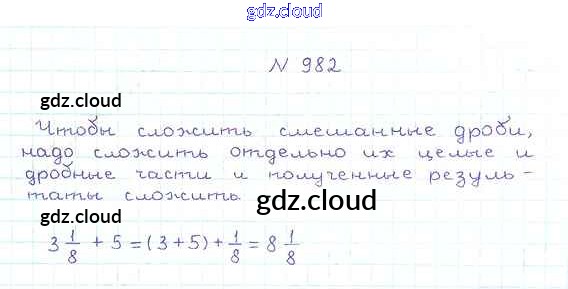 gdz.cloud
N 982
gdz.cloud
Чтобы сложить смешанные дроби,
надо сложить отдельно их целые и
дробные части и полученные резуль-
таты сложить.
gdz.cloud
3 1/8 + 5 = (3 + 5) + 1/8 = 8 1/8